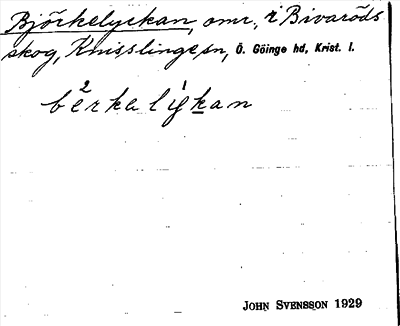 Björkelyckan, omr, i Bivaröds
skog, Knisslinge sn, Ö. Göinge hd, Krist. l.
bèrkelýkan
JOHN SVENSSON 1929